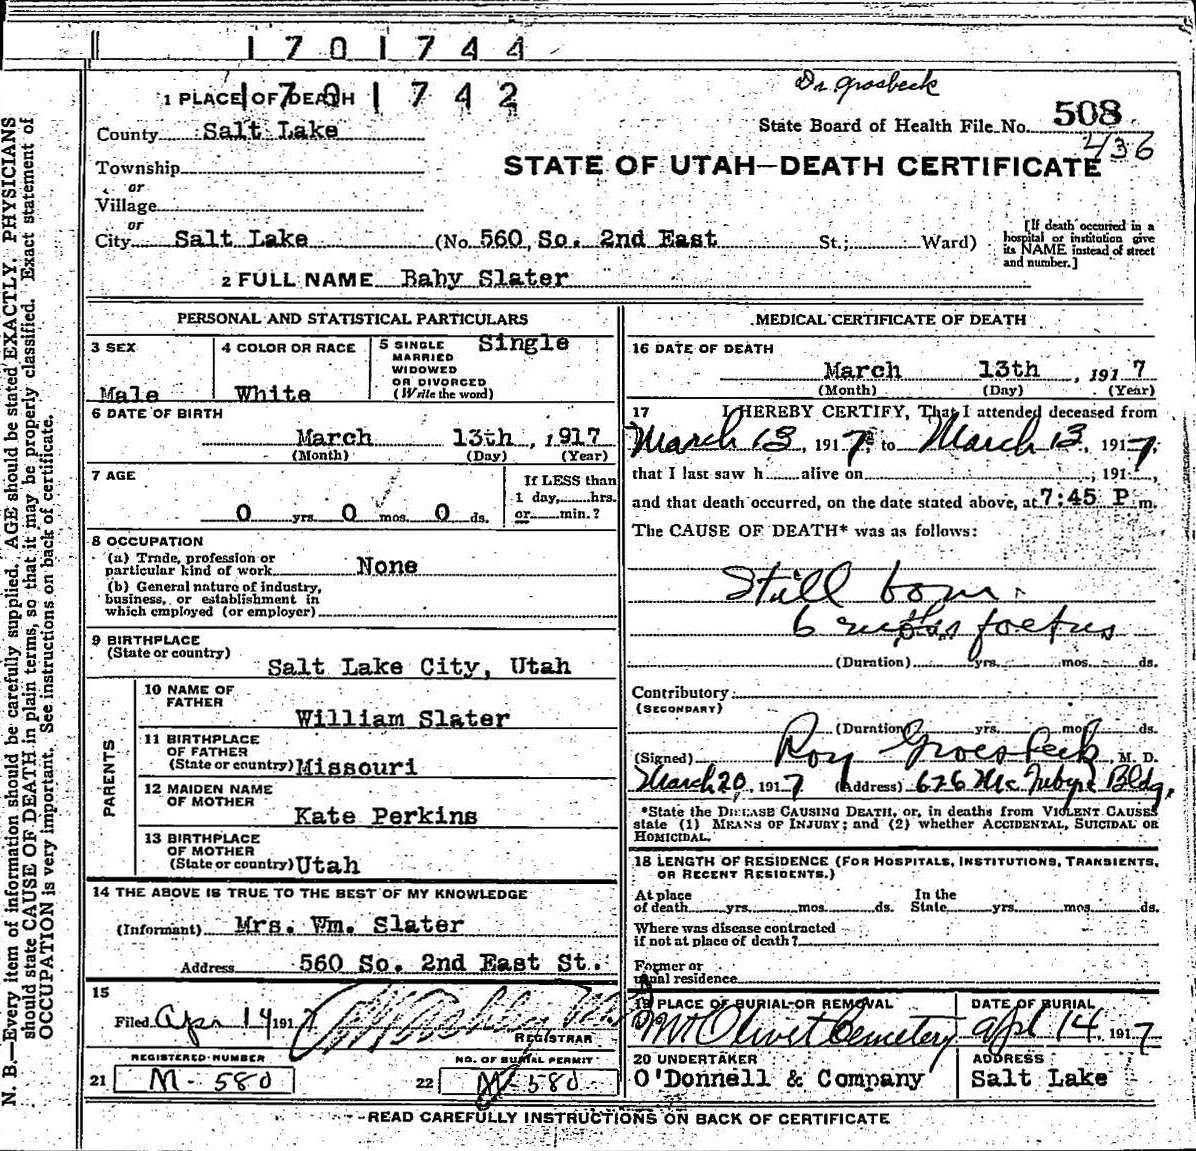 1701744
1701742
Dr. Grosbeck
1 PLACE OF DEATH
County Salt Lake
State Board of Health File No. 508
436
STATE OF UTAH—DEATH CERTIFICATE
Township
or
Village
or
City Salt Lake (No. 560 So. 2nd East St.; Ward)
[If death occurred in a
hospital or institution give
its NAME instead of street
and number.]
2 FULL NAME Baby Slater
PERSONAL AND STATISTICAL PARTICULARS
3 SEX
Male
4 COLOR OR RACE
White
5 SINGLE
MARRIED
WIDOWED
OR DIVORCED
(Write the word)
Single
6 DATE OF BIRTH
March 13th, 1917
(Month) (Day) (Year)
7 AGE
0 yrs. 0 mos. 0 ds.
If LESS than
1 day, hrs.
or min.?
8 OCCUPATION
(a) Trade, profession or
particular kind of work None
(b) General nature of industry,
business, or establishment in
which employed (or employer)
9 BIRTHPLACE
(State or country)
Salt Lake City, Utah
PARENTS
10 NAME OF
FATHER
William Slater
11 BIRTHPLACE
OF FATHER
(State or country) Missouri
12 MAIDEN NAME
OF MOTHER
Kate Perkins
13 BIRTHPLACE
OF MOTHER
(State or country) Utah
14 THE ABOVE IS TRUE TO THE BEST OF MY KNOWLEDGE
(Informant) Mrs. Wm. Slater
Address 560 So. 2nd East St.
15
Filed Apr 14 1917
REGISTRAR
REGISTERED NUMBER
21 M-580
NO. OF BURIAL PERMIT
22 M 580
MEDICAL CERTIFICATE OF DEATH
16 DATE OF DEATH
March 13th, 1917
(Month) (Day) (Year)
17 I HEREBY CERTIFY, That I attended deceased from
March 13, 1917, to March 13, 1917,
that I last saw h alive on , 191 ,
and that death occurred, on the date stated above, at 7:45 P m.
The CAUSE OF DEATH* was as follows:
Still born
6 mths foetus
(Duration) yrs. mos. ds.
Contributory
(SECONDARY)
(Duration) yrs. mos. ds.
(Signed) Roy Groesbeck M. D.
March 20, 1917 (Address) 626 McIntyre Bldg.
*State the DISEASE CAUSING DEATH, or, in deaths from VIOLENT CAUSES
state (1) MEANS OF INJURY; and (2) whether ACCIDENTAL, SUICIDAL OR
HOMICIDAL.
18 LENGTH OF RESIDENCE (FOR HOSPITALS, INSTITUTIONS, TRANSIENTS,
OR RECENT RESIDENTS.)
At place
of death yrs. mos. ds.
In the
State yrs. mos. ds.
Where was disease contracted
if not at place of death?
Former or
usual residence
19 PLACE OF BURIAL OR REMOVAL
Mt Olivet Cemetery
DATE OF BURIAL
Apl 14, 1917
20 UNDERTAKER
O'Donnell & Company
ADDRESS
Salt Lake
READ CAREFULLY INSTRUCTIONS ON BACK OF CERTIFICATE
N. B.—Every item of information should be carefully supplied. AGE should be stated EXACTLY. PHYSICIANS
should state CAUSE OF DEATH in plain terms, so that it may be properly classified. Exact statement of
OCCUPATION is very important. See instructions on back of certificate.